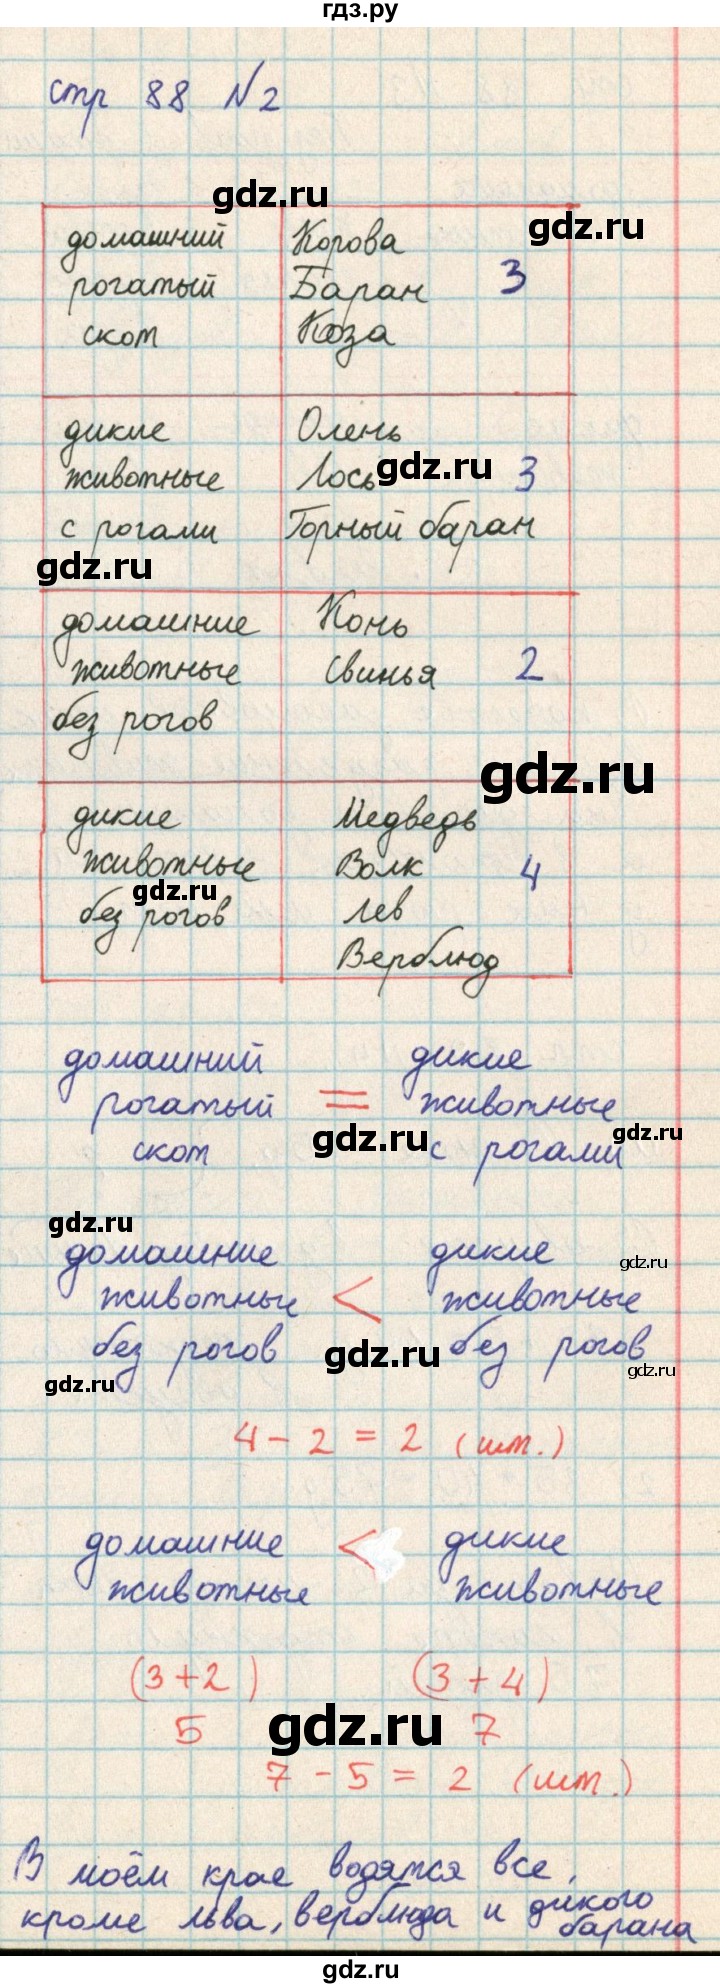 гдз.ру
стр 88 №2
gdz.ru
gdz.ru
домашний Корова
рогатый Баран 3
скот Коза
дикие Олень
gdz.ru
животные Лось 3
с рогами Горный баран
gdz.ru
домашние Конь
животные Свинья 2
без рогов
gdz.ru
дикие Медведь
животные Волк 4
gdz.ru
без рогов Лев
Верблюд
домашний дикие
рогатый = животные
gdz.ru
gdz.ru
скот с рогами
gdz.ru
домашние дикие
gdz.ru
животные < животные
без рогов без рогов
gdz.ru
gdz.ru
gdz.ru
4 - 2 = 2 (шт.)
домашние < дикие
животные животные
(3+2) (3+4)
5 7
gdz.ru
7 - 5 = 2 (шт.)
В моём крае водятся все,
кроме льва, верблюда и дикого
барана
gdz.ru